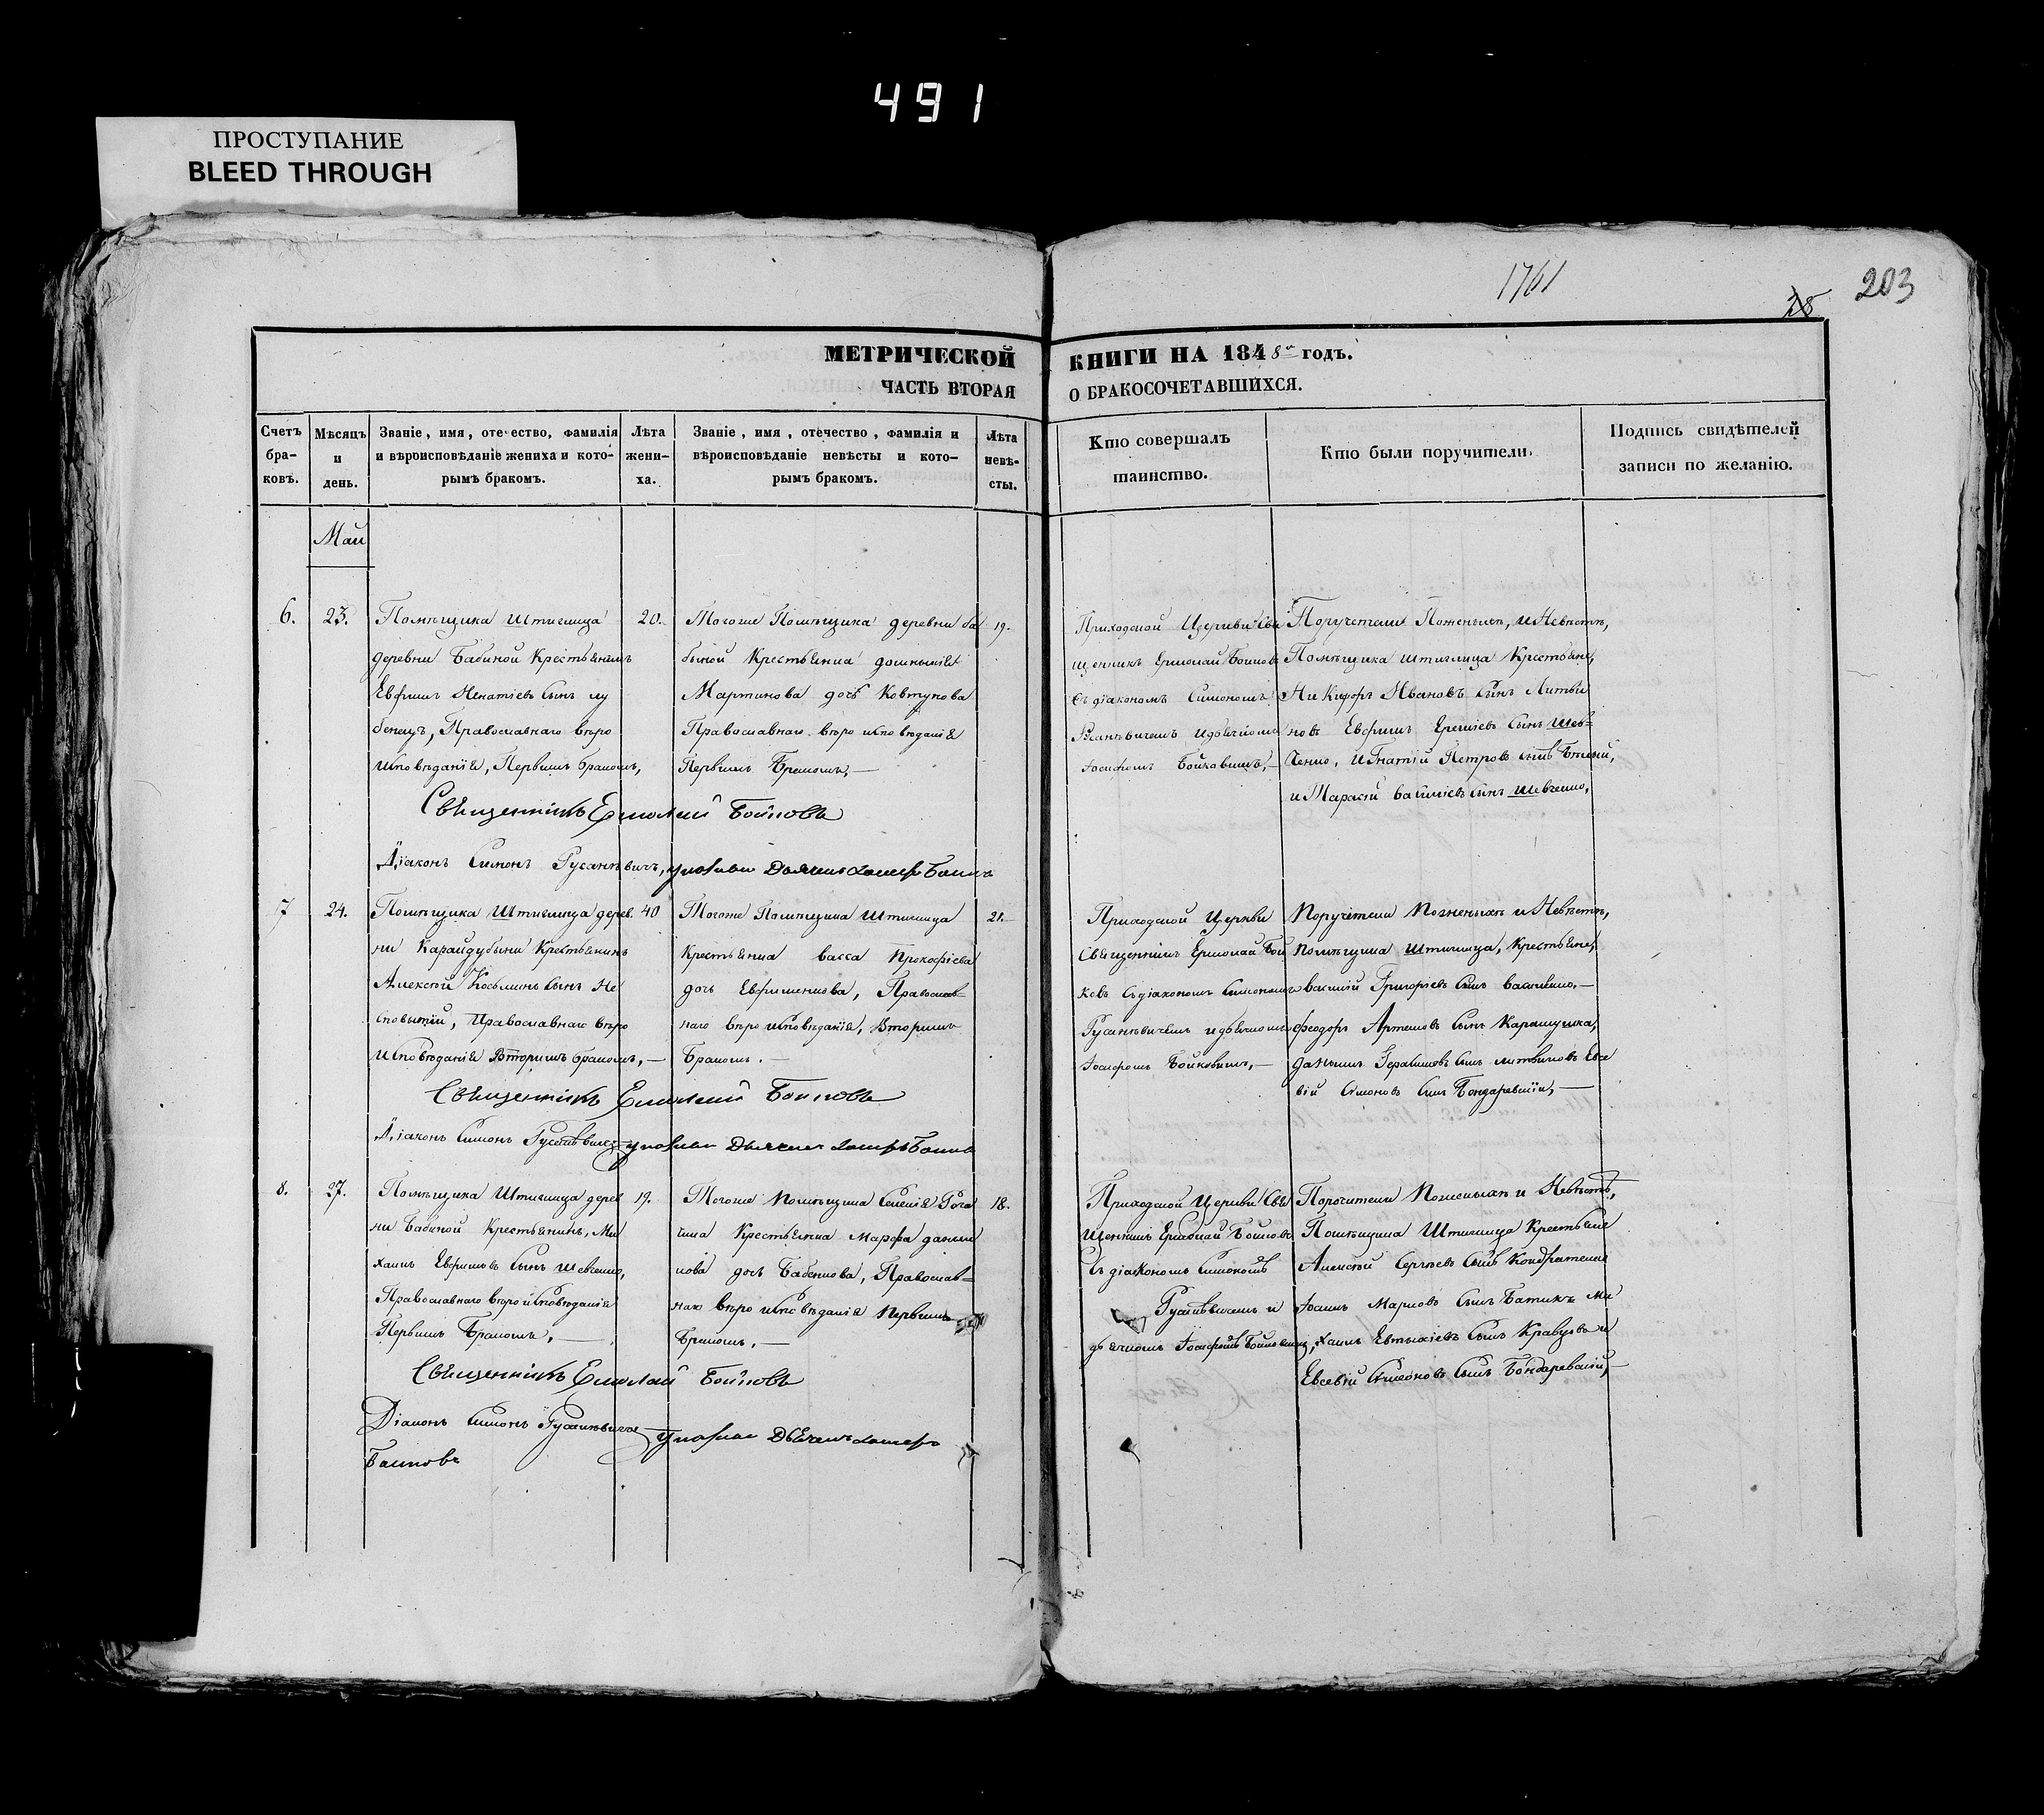 491
ПРОСТУПАНИЕ
BLEED THROUGH
1761
203
28
МЕТРИЧЕСКОЙ КНИГИ НА 1848 годъ.
ЧАСТЬ ВТОРАЯ О БРАКОСОЧЕТАВШИХСЯ.
Счетъ браковъ.
Мѣсяцъ и день.
Званіе, имя, отечество, фамилія и вѣроисповѣданіе жениха и которымъ бракомъ.
Лѣта жениха.
Званіе, имя, отечество, фамилія и вѣроисповѣданіе невѣсты и которымъ бракомъ.
Лѣта невѣсты.
Кто совершалъ таинство.
Кто были поручители.
Подпись свидѣтелей записи по желанію.
Май
6.
23.
Помѣщика Штиглица
деревни Бабиной Крестьянинъ
Евфимъ Игнатіевъ Сынъ лу
бенецъ, Православнаго вѣро
исповѣданія, Первимъ бракомъ,
20.
Тогоже Помѣщика деревни ба
биной Крестьянка
Мартинова дочь Ковтунова
Православнаго вѣро исповѣданія
Первимъ Бракомъ,
19.
Приходской Церкви Свя
щенникъ Ермолай Бойковъ
Съ діакономъ Симономъ
Іосифомъ Бойковимъ,
Поручители По женихѣ, и Невѣстѣ,
Помѣщика штиглица Крестьяне,
Никифоръ Ивановъ Сынъ Литви
новъ Евфимъ Сынъ Шев=
ченко, Игнатій Петровъ сынъ
и Тарасій василіевъ сынъ шевченко,
Священникъ Ермолай Бойковъ
Діаконъ Симонъ
7
24.
Помѣщика Штиглица дерев.
ни Карайдубыни Крестьянинъ
Алексѣй Косьминъ Сынъ Не
сповытій, Православнаго вѣро
исповѣданія Вторимъ бракомъ,
40
Тогоже Помѣщика Штиглица
Крестьянка васса Прокофіева
дочь Евфименкова, Православ=
наго вѣро исповѣданія, Вторимъ
Бракомъ.
21.
Приходской Церкви
Священникъ Ермолай Бой
ковъ Съ діакономъ Симономъ
Іосифомъ Бойковимъ,
Поручители По женихѣ и Невѣстѣ,
Помѣщика Штиглица, Крестьяне,
василій Григоріевъ Сынъ василенко,
феодоръ Артемовъ Сынъ
Даніилъ Герасимовъ Сынъ литвиновъ Евсе
вій Симоновъ Сынъ Бондаревскій,
Священникъ Ермолай Бойковъ
Діаконъ Симонъ
8.
27.
Помѣщика Штиглица дерев
ни Бабиной Крестьянинъ, Ми
хаилъ Евфимовъ Сынъ шевченко,
Православнаго вѣро исповѣданія
Первимъ Бракомъ,
19.
Тогоже Помѣщика Селенія Рога
чика Крестьянка Марфа дании
лова дочь Бабенкова, Православ=
наго вѣро исповѣданія Первимъ
Бракомъ,
18.
Приходской Церкви Свя
щенникъ Ермолай Бойковъ
Съ діакономъ Симономъ
Іосифомъ Бойковимъ,
Поручители По женихѣ и Невѣстѣ,
Помѣщика Штиглица Крестьяне
Алексѣй Сергѣевъ Сынъ Кондратенко
Іоаннъ Марковъ Сынъ Батикъ Ми
хаилъ Евтихіевъ Сынъ Кравцовъ и
Евсевій Симоновъ Сынъ Бондаревскій,
Священникъ Ермолай Бойковъ
Діаконъ Симонъ
Бойковъ